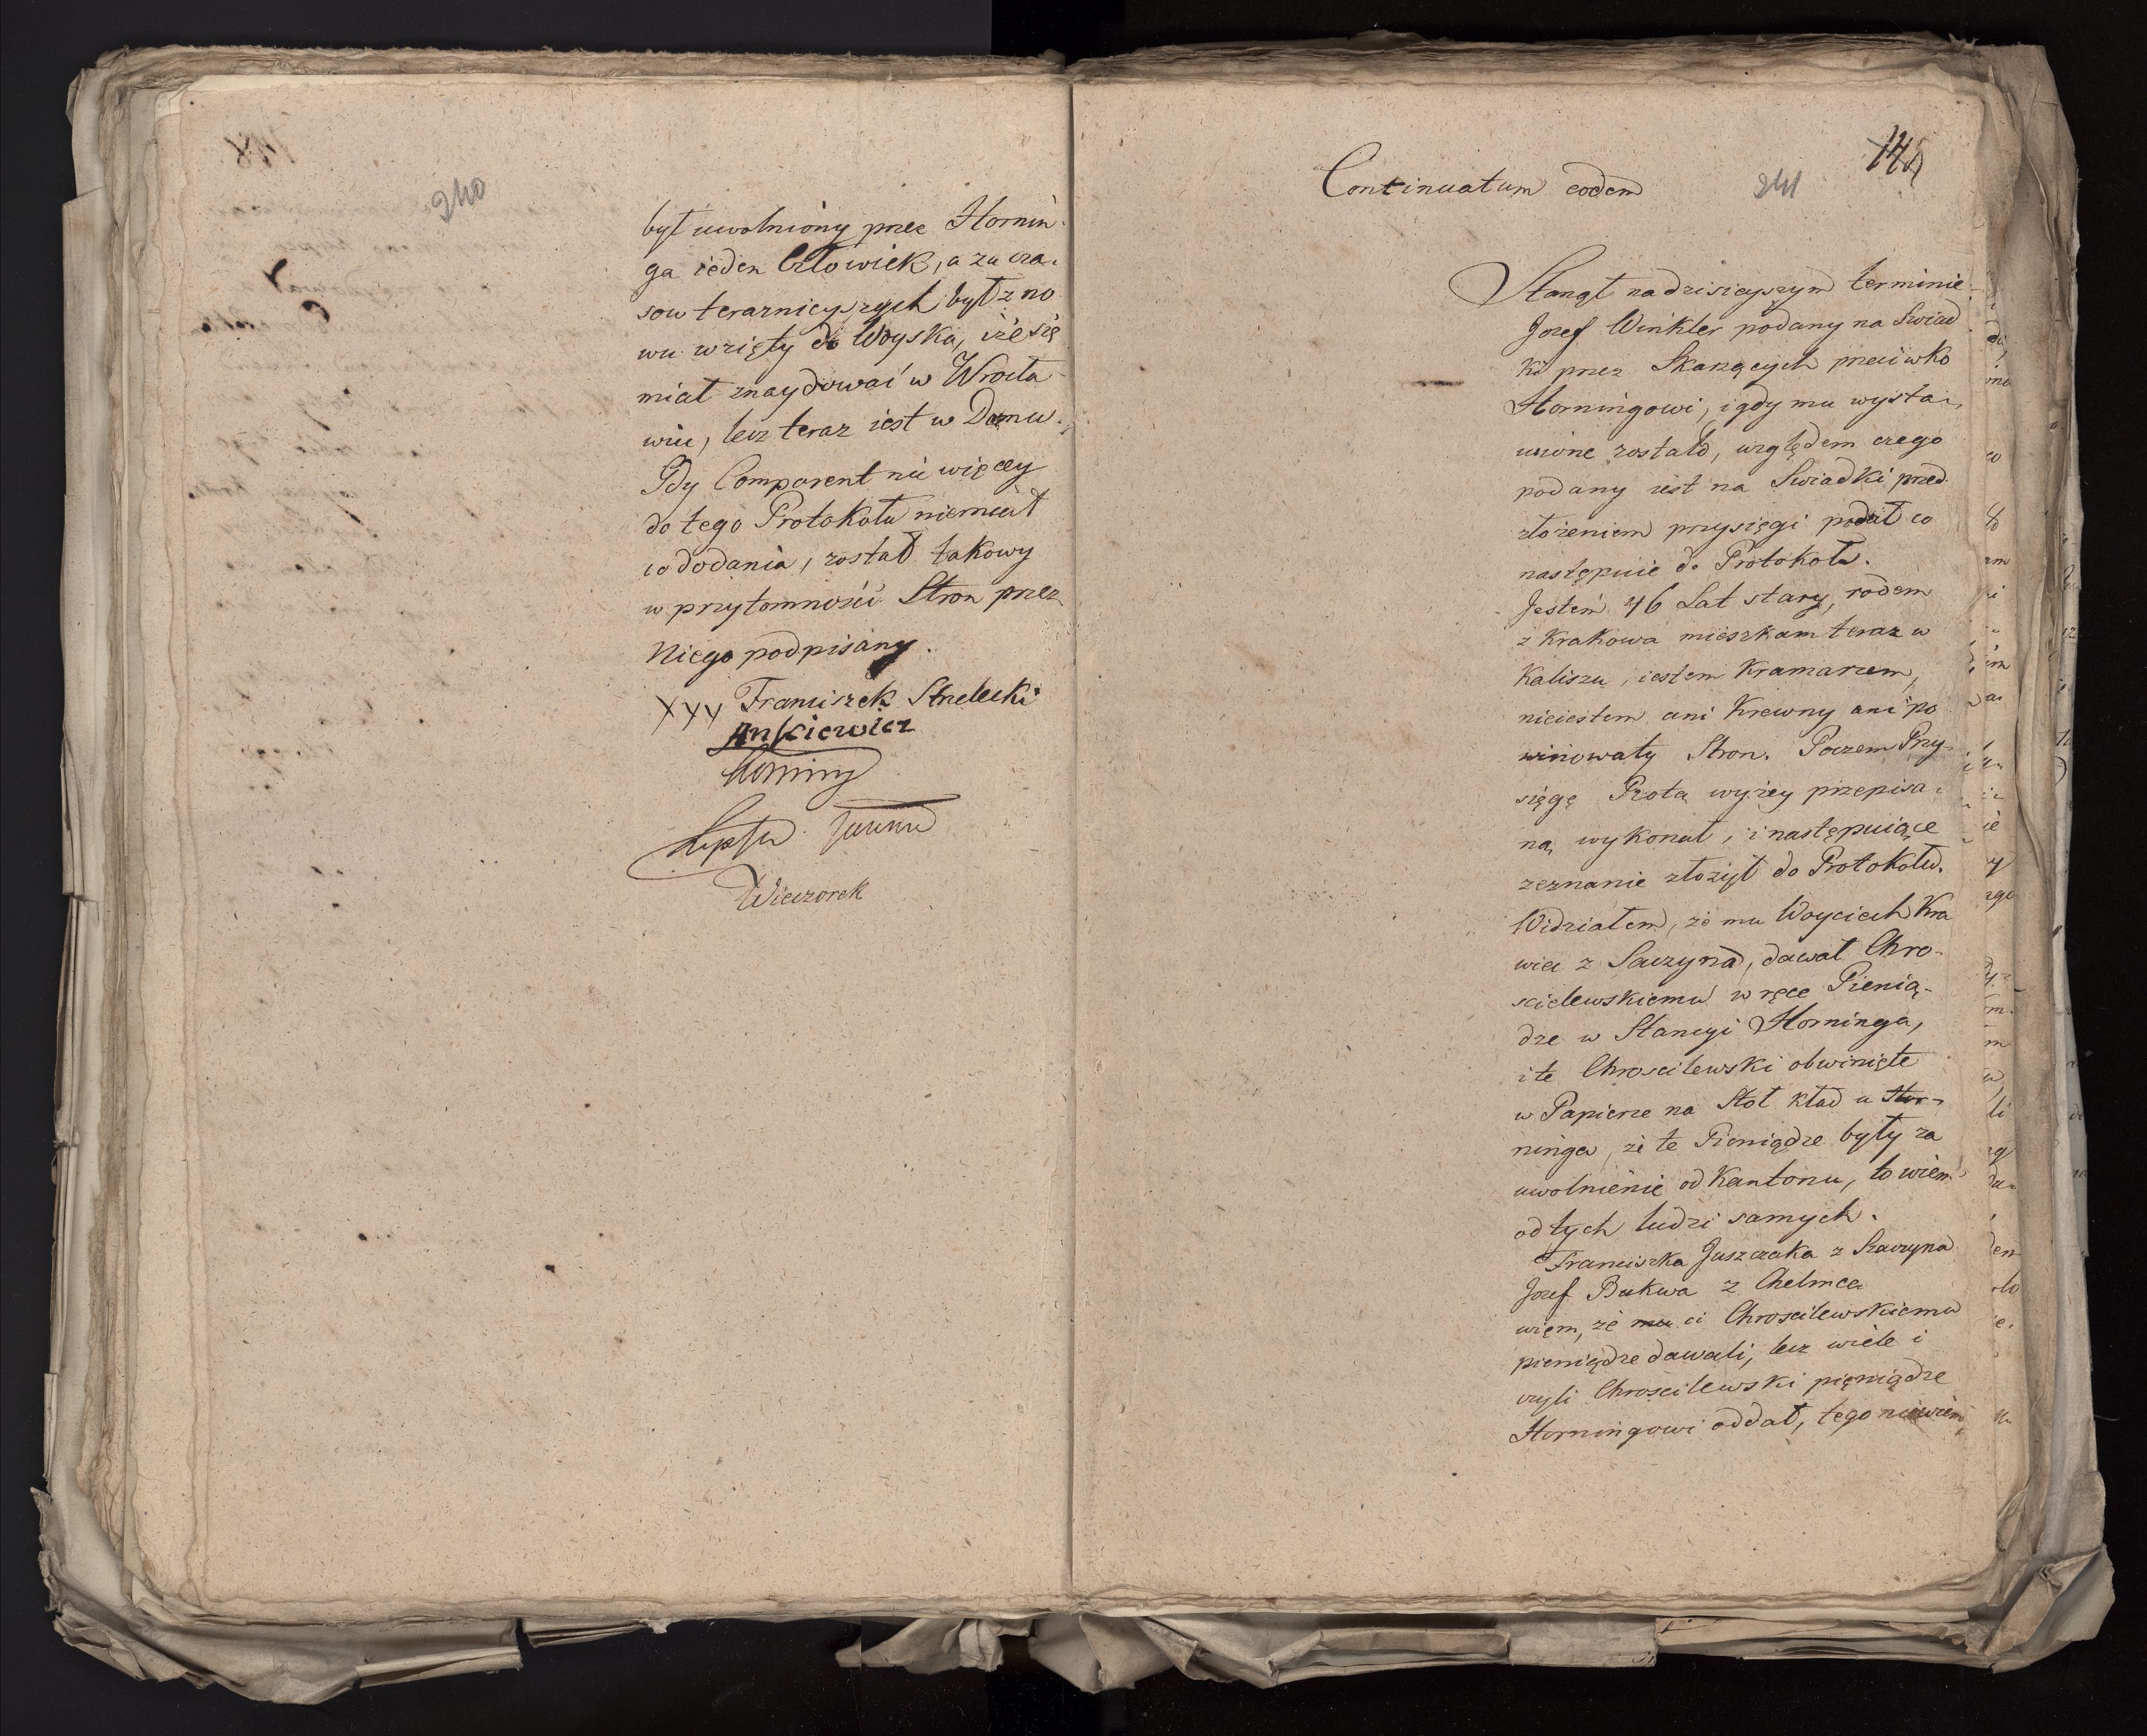 240
był uwolniony przez Hornin-
ga ieden Człowiek, a za cza-
sow teraznieyszych był zno
wu wzięty do Woyska, iże się
miał znaydować w Wrocła-
wiu, lecz teraz iest w Domu.
Gdy Comparent nic więcey
do tego Protokołu niemiał
co dodania, został takowy
w przytomności Stron przez
Niego podpisany.
XXX Franciszek Strzelecki
Anściewicz
Horning
Wieczorek
Continuatum eodem
241
Stanął na dzisieyszym terminie
Jozef Winkler podany na Swiad
ka przez Skarzących przeciwko
Horningowi, i gdy mu wysta-
wione zostało, względem czego
podany iest na Swiadki, przed
złożeniem przysięgi podał co
następuie do Protokołu.
Jestem 46 Lat stary, rodem
z Krakowa mieszkam teraz w
Kaliszu, iestem Kramarzem,
nieiestem ani Krewny ani po
winowaty Stron. Poczem Przy-
sięgę Rotą wyżey przepisa-
ną, wykonał, i następuiące
zeznanie złożył do Protokołu.
Widziałem, że mu Woyciech Kra
wiec z Saczyna, dawał Chro-
scielewskiemu w ręce Pienią-
dze w Stancyi Horninga,
i te Chroscilewski obwinięte
w Papierze na Stoł kład u Hor-
ninga, że te Pieniądze były za
uwolnienie od Kantonu, to wiem
od tych ludzi samych.
Franciszka Juszczaka z Szaczyna
Jozef Bukwa z Chelmca
wiem, że mu ci Chroscilewskiemu
pieniądze dawali, lecz wiele i
czyli Chroscilewski pieniądze
Horningowi oddał, tego niewiem